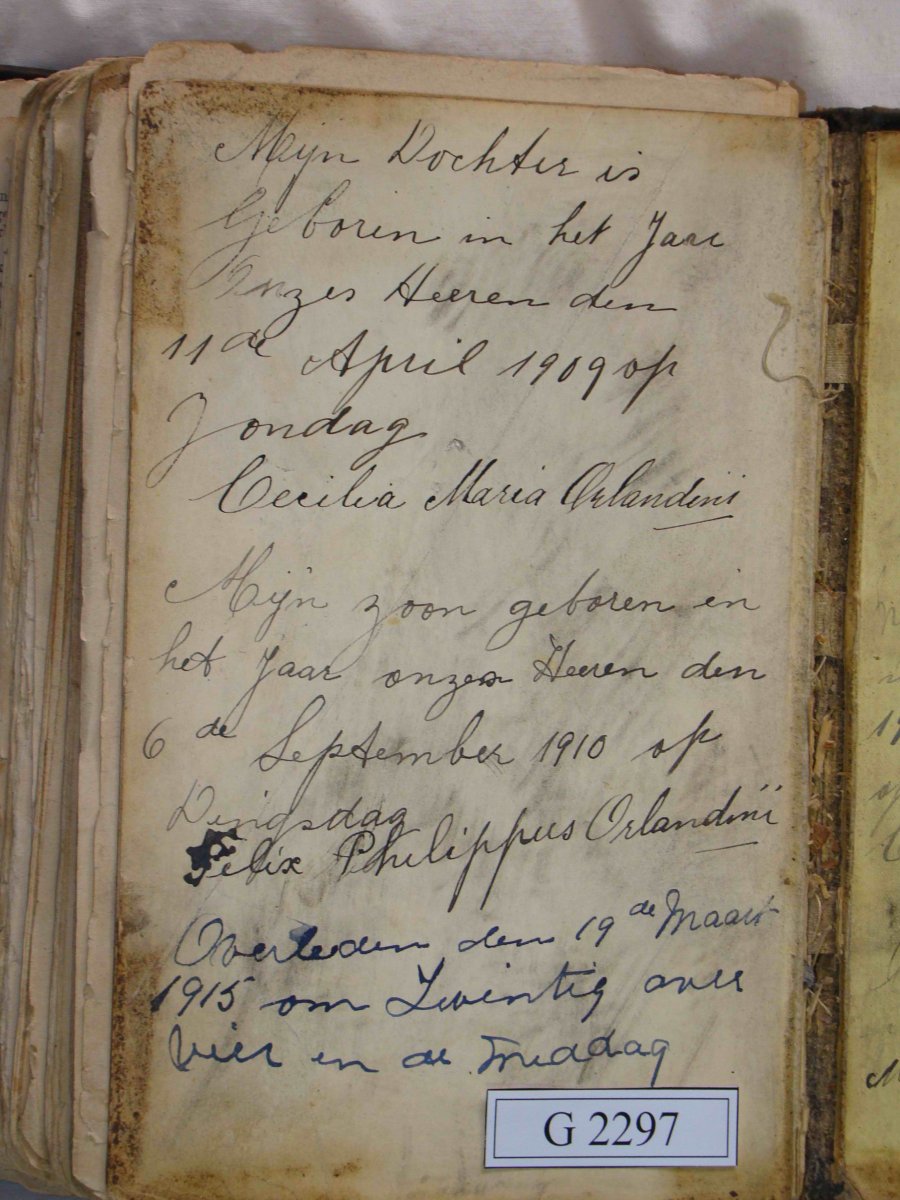 Mijn Dochter is
Geboren in het Jaar
Onzes Heeren den
11de April 1909 op
Zondag
Cecilia Maria Orlandini
Mijn zoon geboren in
het Jaar onzes Heeren den
6de September 1910 op
Dingsdag
Felix Philippus Orlandini
Overleden den 19de Maart
1915 om Twintig over
Vier in de middag
G 2297